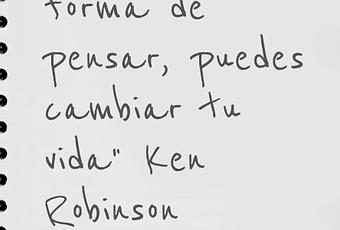 forma de
pensar, puedes
cambiar tu
vida" Ken
Robinson